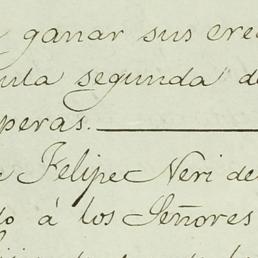 ganar sus cre
ula segunda de
peras.
Felipe Neri de
do á los Señores